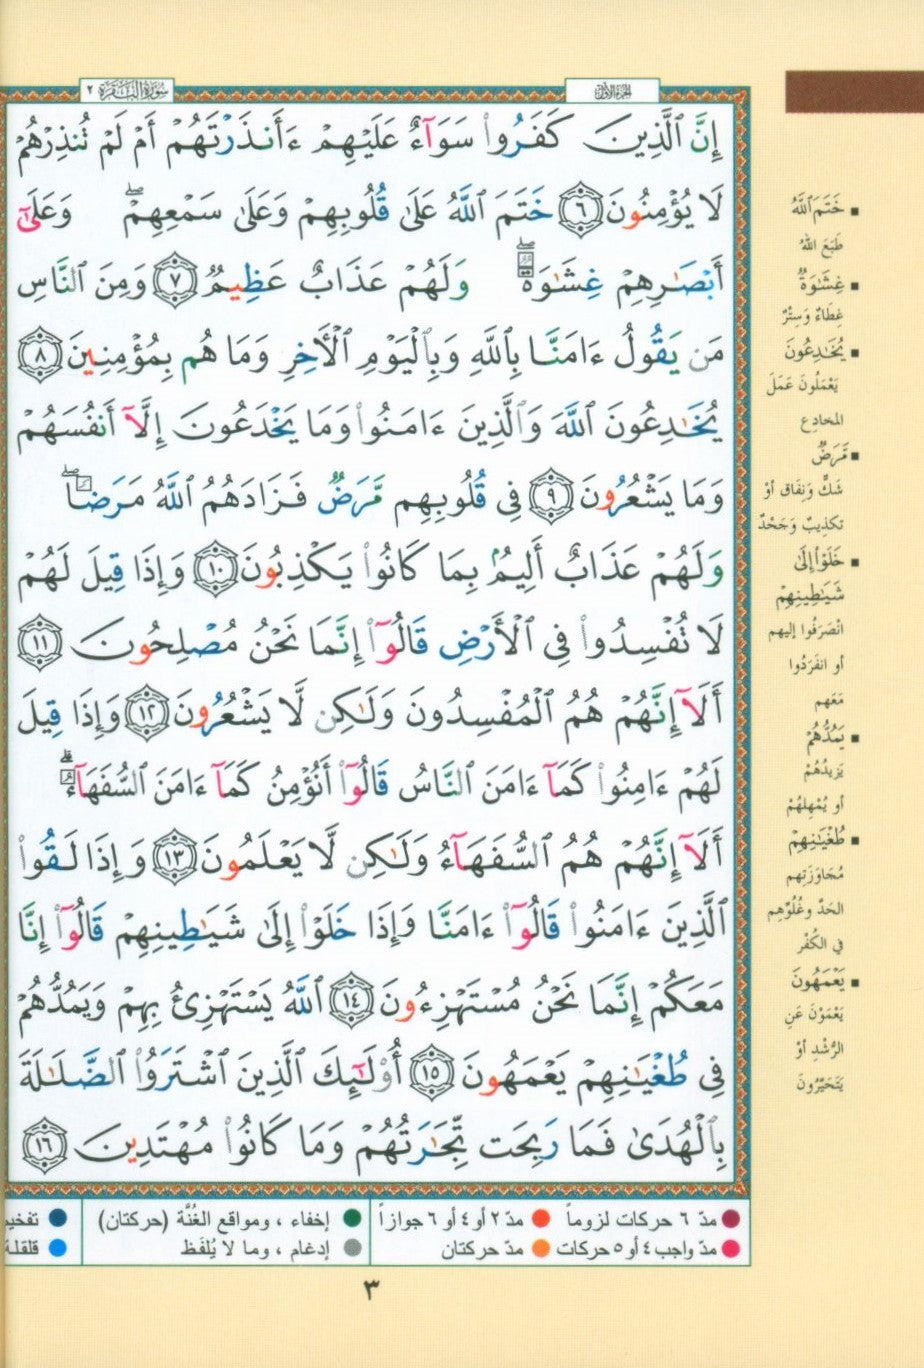 سُورَةُ البَقَرَة ٢
الجزء الأول
إِنَّ ٱلَّذِينَ كَفَرُوا۟ سَوَآءٌ عَلَيْهِمْ ءَأَنذَرْتَهُمْ أَمْ لَمْ تُنذِرْهُمْ
لَا يُؤْمِنُونَ ٦ خَتَمَ ٱللَّهُ عَلَىٰ قُلُوبِهِمْ وَعَلَىٰ سَمْعِهِمْ ۖ وَعَلَىٰٓ
أَبْصَٰرِهِمْ غِشَٰوَةٌ ۖ وَلَهُمْ عَذَابٌ عَظِيمٌ ٧ وَمِنَ ٱلنَّاسِ
مَن يَقُولُ ءَامَنَّا بِٱللَّهِ وَبِٱلْيَوْمِ ٱلْأَخِرِ وَمَا هُم بِمُؤْمِنِينَ ٨
يُخَٰدِعُونَ ٱللَّهَ وَٱلَّذِينَ ءَامَنُوا۟ وَمَا يَخْدَعُونَ إِلَّآ أَنفُسَهُمْ
وَمَا يَشْعُرُونَ ٩ فِى قُلُوبِهِم مَّرَضٌ فَزَادَهُمُ ٱللَّهُ مَرَضًا ۖ
وَلَهُمْ عَذَابٌ أَلِيمٌۢ بِمَا كَانُوا۟ يَكْذِبُونَ ١٠ وَإِذَا قِيلَ لَهُمْ
لَا تُفْسِدُوا۟ فِى ٱلْأَرْضِ قَالُوٓا۟ إِنَّمَا نَحْنُ مُصْلِحُونَ ١١
أَلَآ إِنَّهُمْ هُمُ ٱلْمُفْسِدُونَ وَلَٰكِن لَّا يَشْعُرُونَ ١٢ وَإِذَا قِيلَ
لَهُمْ ءَامِنُوا۟ كَمَآ ءَامَنَ ٱلنَّاسُ قَالُوٓا۟ أَنُؤْمِنُ كَمَآ ءَامَنَ ٱلسُّفَهَآءُ ۗ
أَلَآ إِنَّهُمْ هُمُ ٱلسُّفَهَآءُ وَلَٰكِن لَّا يَعْلَمُونَ ١٣ وَإِذَا لَقُوا۟
ٱلَّذِينَ ءَامَنُوا۟ قَالُوٓا۟ ءَامَنَّا وَإِذَا خَلَوْا۟ إِلَىٰ شَيَٰطِينِهِمْ قَالُوٓا۟ إِنَّا
مَعَكُمْ إِنَّمَا نَحْنُ مُسْتَهْزِءُونَ ١٤ ٱللَّهُ يَسْتَهْزِئُ بِهِمْ وَيَمُدُّهُمْ
فِى طُغْيَٰنِهِمْ يَعْمَهُونَ ١٥ أُو۟لَٰٓئِكَ ٱلَّذِينَ ٱشْتَرَوُا۟ ٱلضَّلَٰلَةَ
بِٱلْهُدَىٰ فَمَا رَبِحَت تِّجَٰرَتُهُمْ وَمَا كَانُوا۟ مُهْتَدِينَ ١٦
خَتَمَ ٱللَّهُ
طَبَعَ اللهُ
غِشَٰوَةٌ
غِطَاءٌ وَسِتْرٌ
يُخَٰدِعُونَ
يَعْمَلُونَ عَمَلَ
المخادِع
مَّرَضٌ
شَكٌّ وَنِفَاق أوْ
تكذِيبٌ وَجَحْدٌ
خَلَوْا۟ إِلَىٰ
شَيَٰطِينِهِمْ
انْصَرَفُوا إليهم
أو انفَرَدُوا
مَعَهم
يَمُدُّهُمْ
يَزِيدُهُمْ
أو يُمْهِلهُمْ
طُغْيَٰنِهِمْ
مُجَاوَزَتِهم
الحَدّ وغُلُوِّهِم
في الكُفْر
يَعْمَهُونَ
يَعْمَوْنَ عَنِ
الرُّشْدِ أوْ
يَتَحَيَّرُونَ
مدّ ٦ حركات لزوماً مدّ ٢ أو ٤ أو ٦ جوازاً إخفاء ، ومواقع الغُنَّة (حركتان) تفخيم
مدّ واجب ٤ أو ٥ حركات مدّ حركتان إدغام ، وما لا يُلفَظ قلقلة
٣